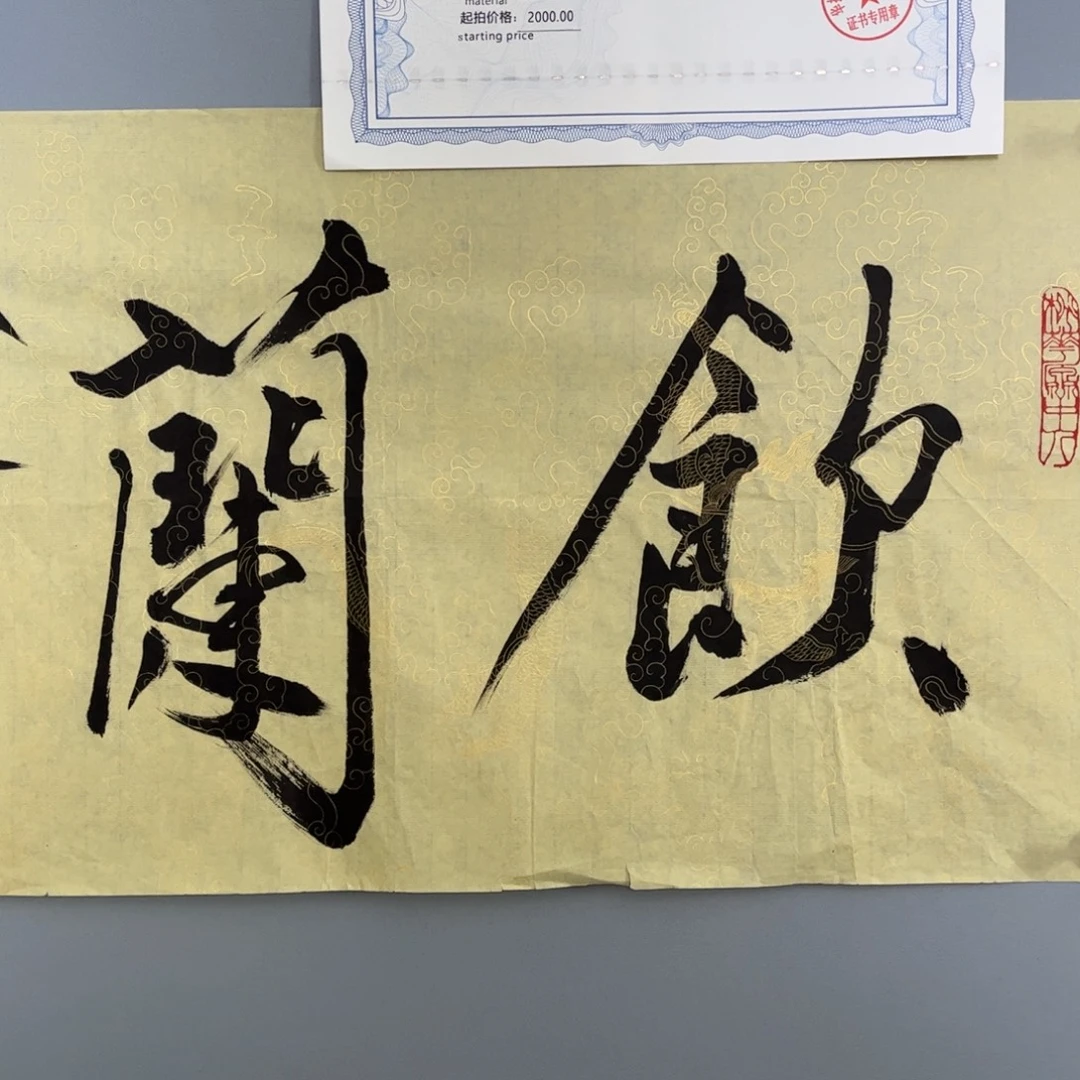 material
起拍价格: 2000.00
starting price
证书专用章
飲蘭